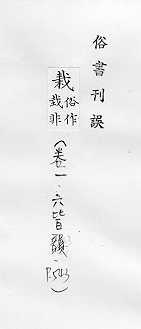 俗書刊誤
栽俗作非
(卷一．六皆韻．P.543)